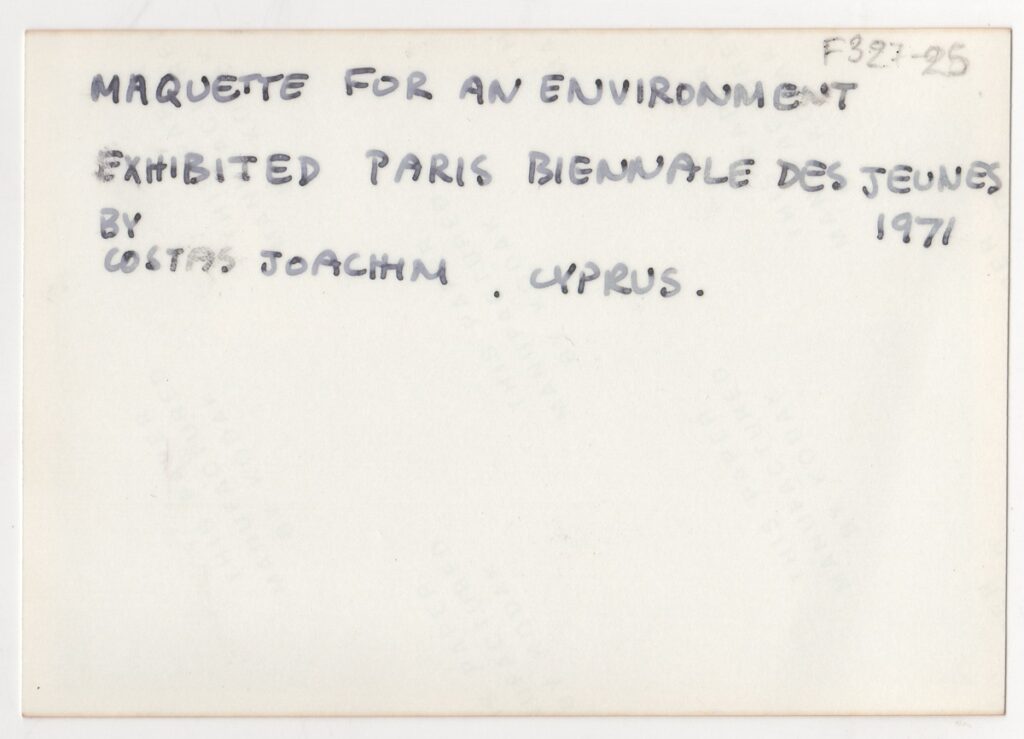 F327-25
MAQUETTE FOR AN ENVIRONMENT
EXHIBITED PARIS BIENNALE DES JEUNES
BY 1971
COSTAS JOACHIM . CYPRUS.